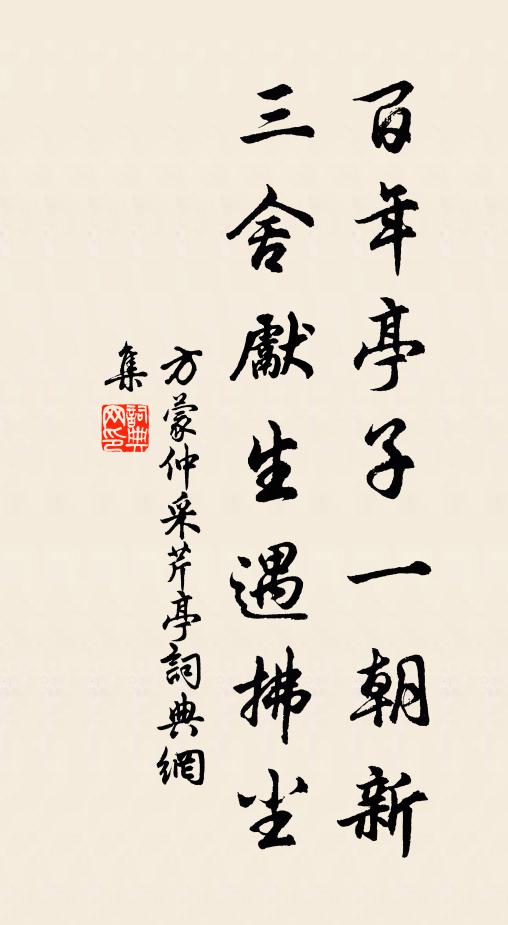 百年亭子一朝新
三舍獻生遇拂尘
方蒙仲采芹亭詞典網
集
詞典网印